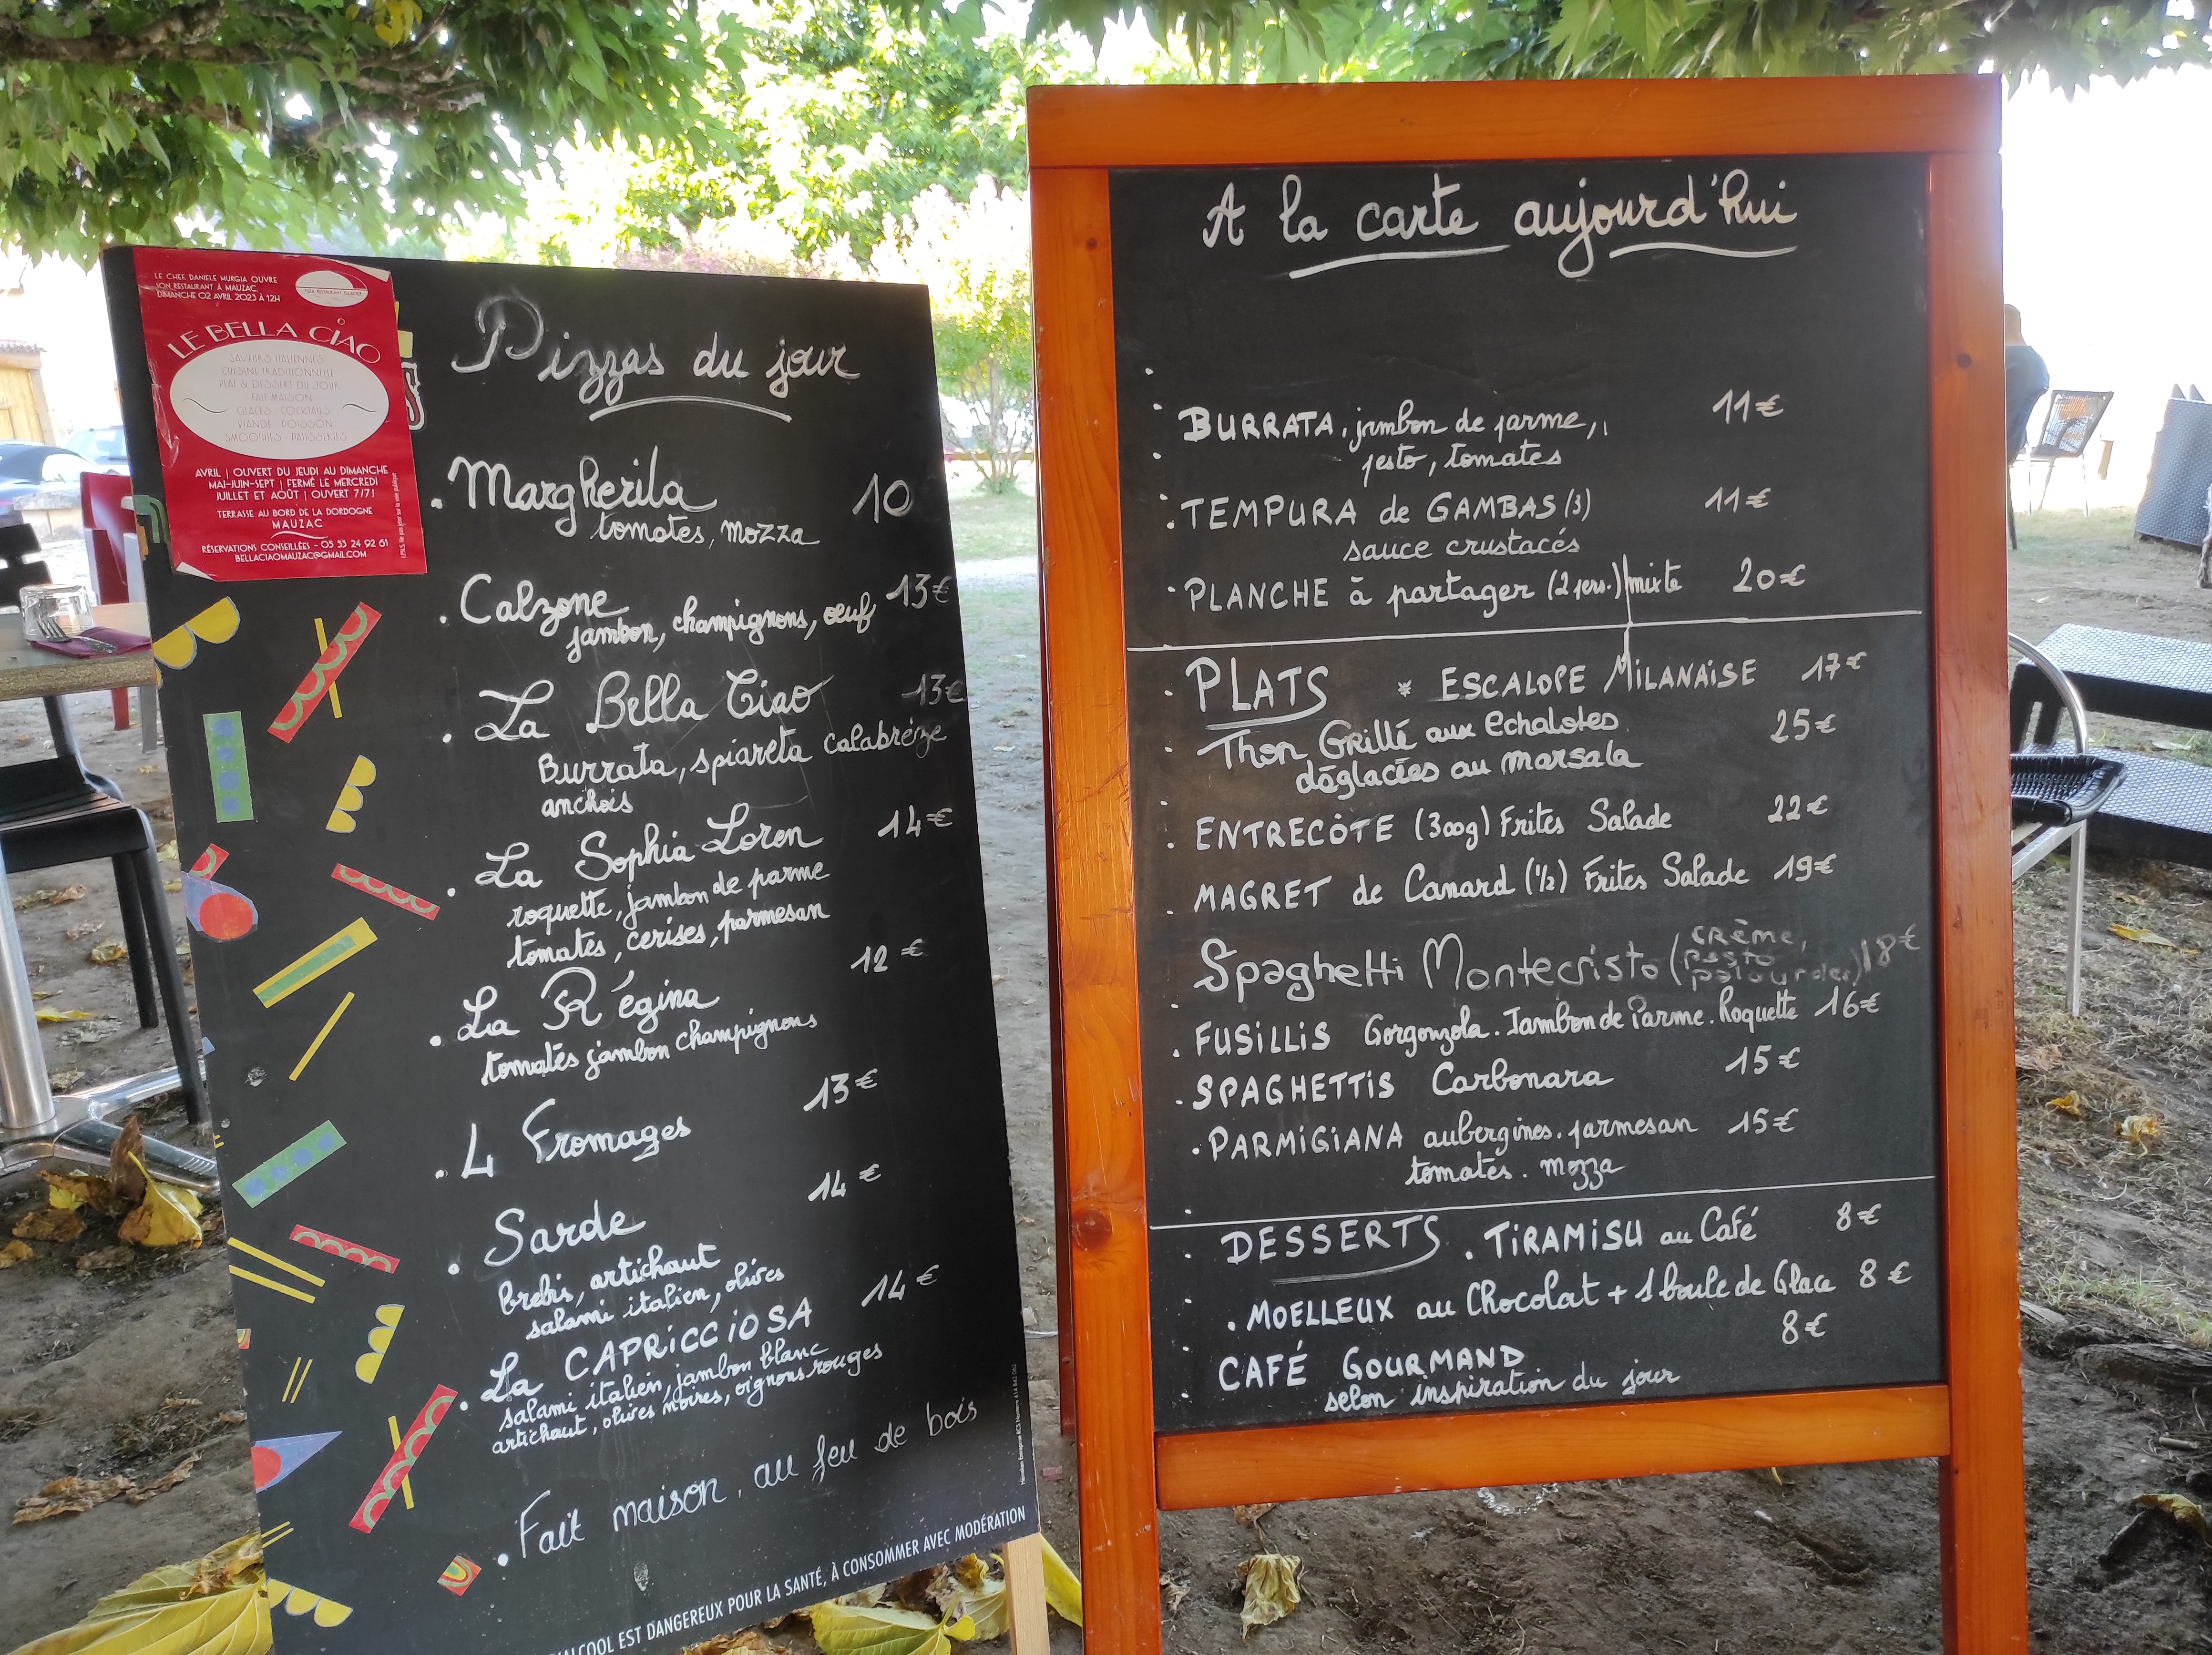 LE CHEF DANIELE MURGIA OUVRE
SON RESTAURANT À MAUZAC
DIMANCHE 02 AVRIL 2023 À 12H
LE BELLA CIAO
SAVEURS ITALIENNES
CUISINE TRADITIONNELLE
PLAT & DESSERT DU JOUR
FAIT MAISON
GLACES - COCKTAILS
VIANDE - POISSON
SMOOTHIES - PATISSERIES
AVRIL | OUVERT DU JEUDI AU DIMANCHE
MAI-JUIN-SEPT | FERMÉ LE MERCREDI
JUILLET ET AOÛT | OUVERT 7/7J
TERRASSE AU BORD DE LA DORDOGNE
MAUZAC
RÉSERVATIONS CONSEILLÉES - 05 53 24 92 61
BELLACIAOMAUZAC@GMAIL.COM
Pizzas du jour
. Margherita 10
tomates, mozza
. Calzone 13€
jambon, champignons, œuf
. La Bella Ciao 13€
Burrata, spiareta calabréze
anchois
. La Sophia Loren 14€
roquette, jambon de parme
tomates, cerises, parmesan
. La Régina 12€
tomates jambon champignons
. 4 Fromages 13€
. Sarde 14€
brebis, artichaut
salami italien, olives
. La CAPRiCCiOSA 14€
salami italien, jambon blanc
artichaut, olives noires, oignons rouges
. Fait maison, au feu de bois
ALCOOL EST DANGEREUX POUR LA SANTÉ, À CONSOMMER AVEC MODÉRATION
A la carte aujourd'hui
. BURRATA, jambon de parme, 11€
pesto, tomates
. TEMPURA de GAMBAS (3) 11€
sauce crustacés
. PLANCHE à partager (2 pers.) mixte 20€
PLATS * ESCALOPE MiLANAiSE 17€
. Thon Grillé aux echalotes 25€
déglacées au marsala
. ENTRECÔTE (300g) Frites Salade 22€
. MAGRET de Canard (1/2) Frites Salade 19€
Spaghetti Montecristo (crème, pesto palourdes) 18€
. FUSiLLiS Gorgonzola. Jambon de Parme. Roquette 16€
. SPAGHETTiS Carbonara 15€
. PARMiGiANA aubergines. parmesan 15€
tomates. mozza
DESSERTS . TiRAMiSU au Café 8€
. MOELLEUX au Chocolat + 1 boule de Glace 8€
CAFÉ GOURMAND 8€
selon inspiration du jour